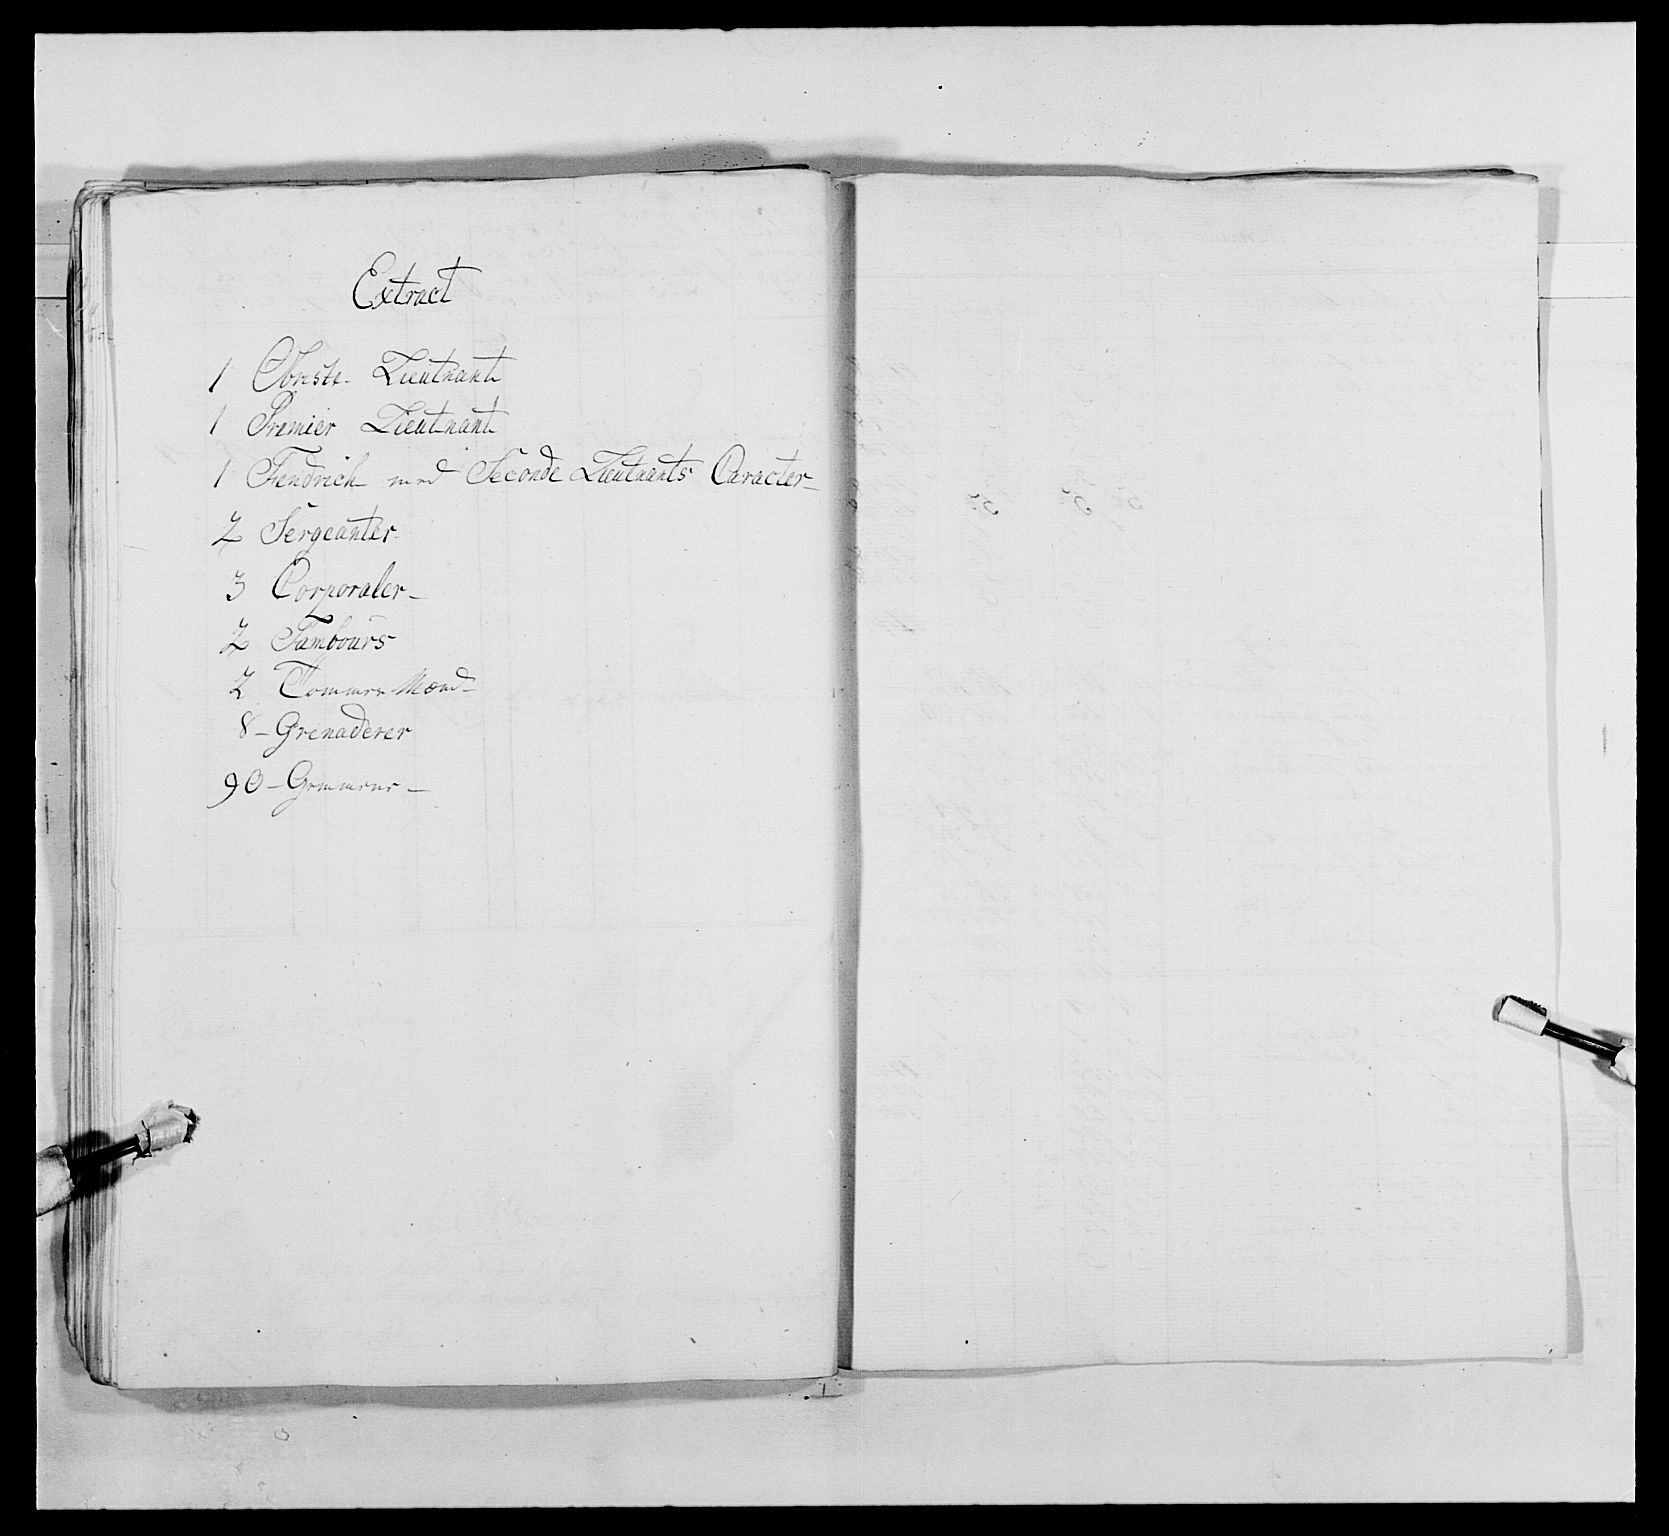 Extract
1 Obriste- Lieutnant
1 Premier Lieutnant
1 Fendrich med Seconde Lieutnants Caracter-
2 Sergeanter-
3 Corporaler-
2 Tambours
2 Tömmer Mænd-
8- Grenaderer
90- Gemeene-